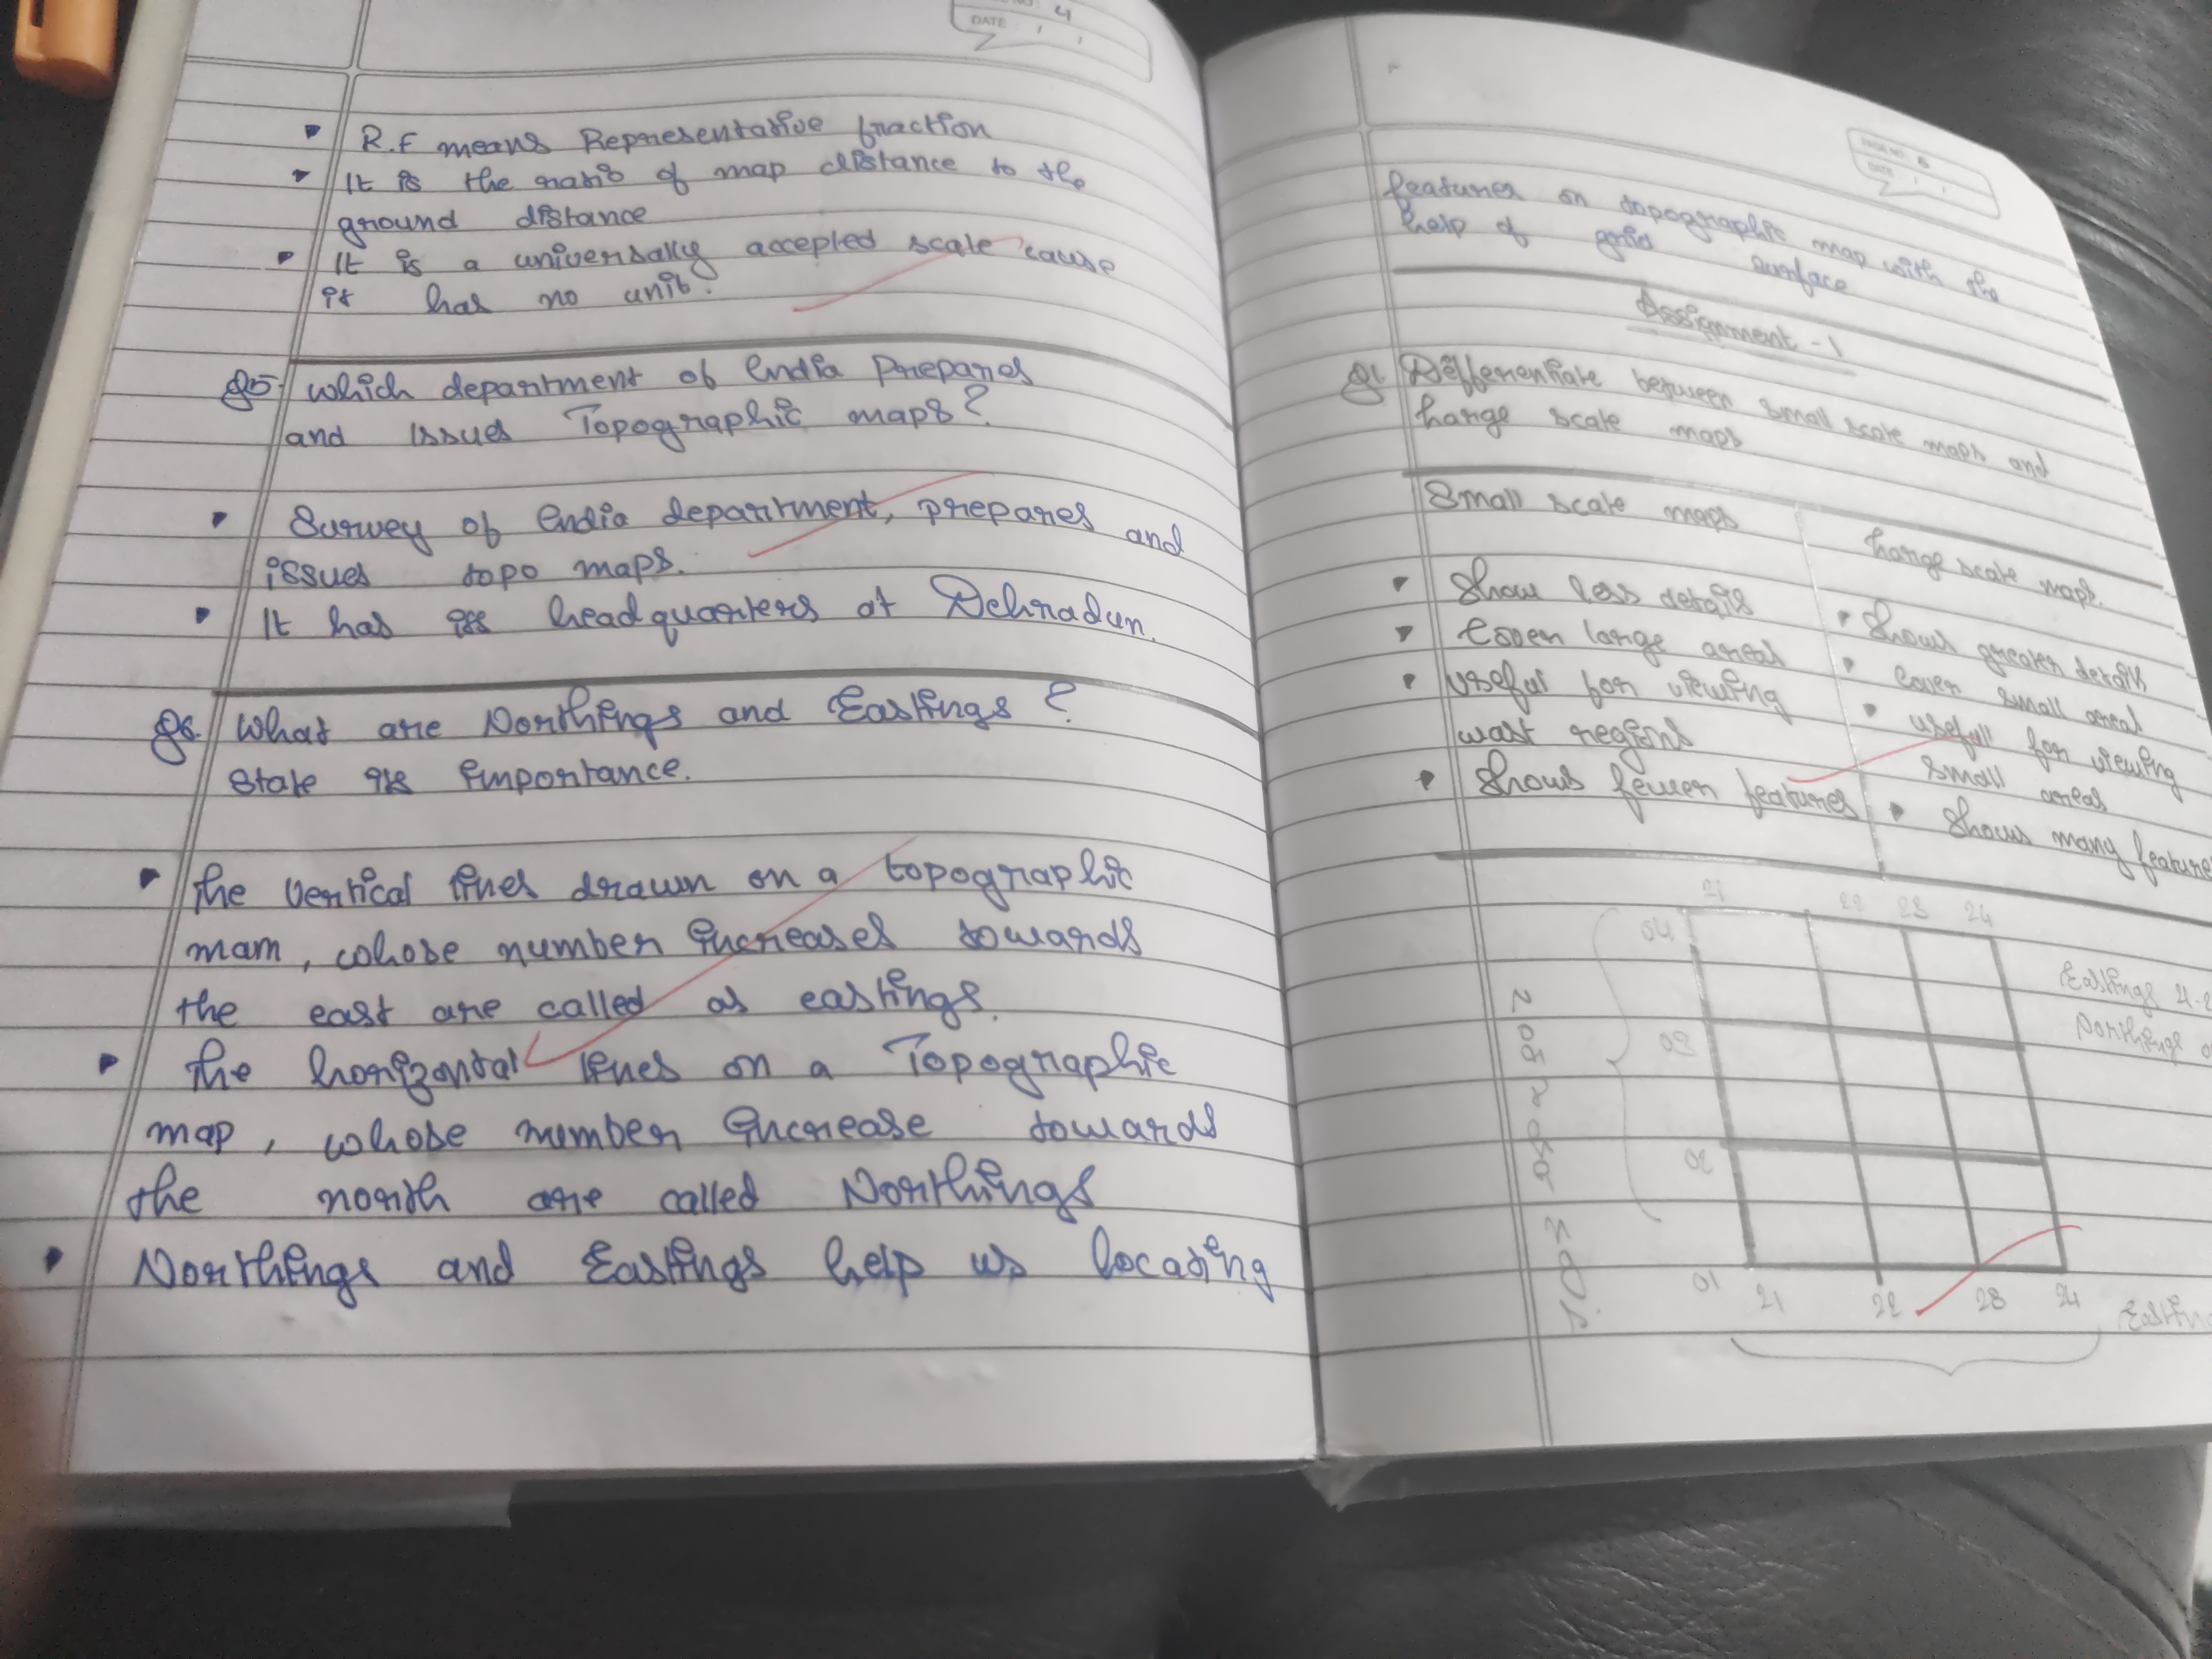 4
DATE
R.F means Representative fraction
It is the ratio of map distance to the
ground distance
It is a universally accepted scale 'cause
it has no unit.
Q5. which department of India Prepares
and issues Topographic maps?
Survey of India department, prepares and
issues topo maps.
It has its headquarters at Dehradun.
Q6. What are Northings and Eastings?
State its importance.
The vertical lines drawn on a topographic
mam, whose number increases towards
the east are called as eastings.
The horizontal lines on a Topographic
map, whose number increase towards
the north are called Northings
Northings and Eastings help us locating
PAGE NO: 5
DATE
features on topographic map with the
help of grid surface
Assignment - 1
Q1. Differentiate between small scale maps and
Large scale maps
Small scale maps
Show less details
Cover large areas
Useful for viewing
wast regions
Shows fewer features
Large scale maps.
Shows greater details
Cover small areas
usefull for viewing
small areas
Shows many feature
21 22 23 24
04
03
02
01
21 22 23 24
Eastings
Northings
Northings
Eastin